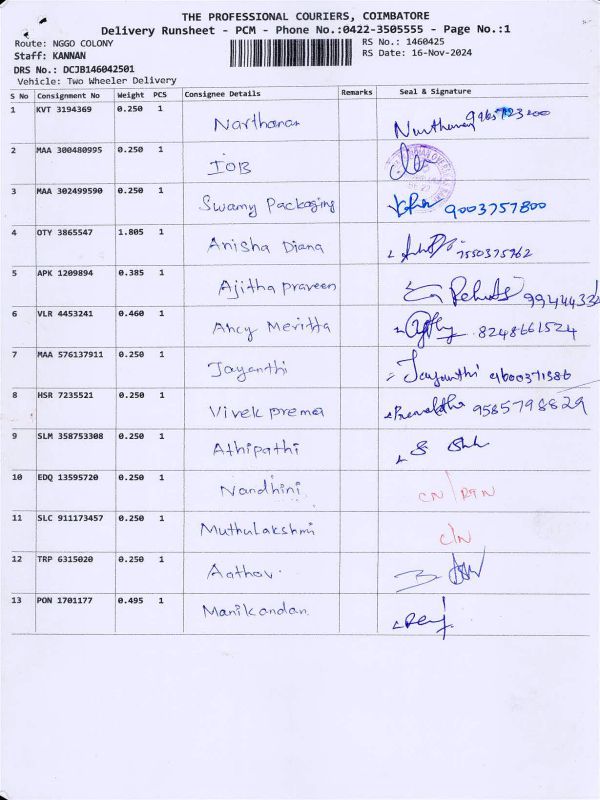 THE PROFESSIONAL COURIERS, COIMBATORE
Delivery Runsheet - PCM - Phone No.:0422-3505555 - Page No.:1
Route: NGGO COLONY RS No.: 1460425
Staff: KANNAN RS Date: 16-Nov-2024
DRS No.: DCJB146042501
Vehicle: Two Wheeler Delivery
S No Consignment No Weight PCS Consignee Details Remarks Seal & Signature
1 KVT 3194369 0.250 1 Narthanar
2 MAA 300480995 0.250 1 IOB
3 MAA 302499590 0.250 1 Swamy Packaging 9003757800
4 OTY 3865547 1.805 1 Anisha Diana 7550375962
5 APK 1209894 0.385 1 Ajitha praveen
6 VLR 4453241 0.460 1 Ancy Meritta 8248661524
7 MAA 576137911 0.250 1 Jayanthi Jayanthi 9600371386
8 HSR 7235521 0.250 1 Vivek prema 9585798829
9 SLM 358753308 0.250 1 Athipathi
10 EDQ 13595720 0.250 1 Nandhini CN/RTN
11 SLC 911173457 0.250 1 Muthulakshmi C/N
12 TRP 6315020 0.250 1 Aathav.
13 PON 1701177 0.495 1 Manikandan